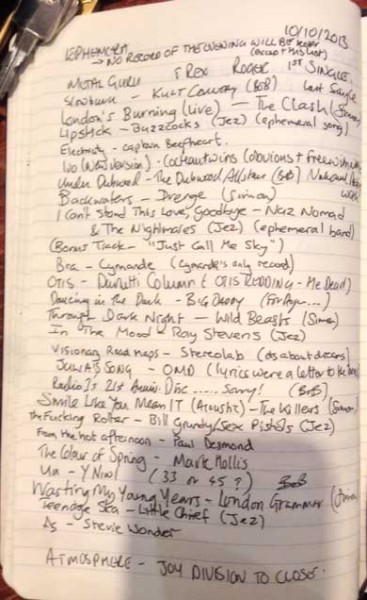 10/10/2013
EPHEMERA
→ NO RECORD OF THE EVENING WILL BE KEPT
(except this list)
METAL GURU T REX ROGER 1ST SINGLE.
Slowburn - Kurt (BOB) Last Single
London's Burning (Live) - The Clash (Simon)
Lipstick - Buzzcocks (Jez) (ephemeral song)
Electricity - Captain Beefheart.
Ivo (New Version) - Cocteau twins (obvious +
Under Dubwood - The Dubwood Allstars (BOB) National
Backwaters - Drenge (Simon)
I Can't Stand This Love, Goodbye - Naz Nomad
& The Nightmares (Jez) (ephemeral band)
(Bonus Track - "Just Call Me Sky")
Bra - Cymande (Cymande's only record)
OTIS - Durutti Column (OTIS REDDING - He Dead)
Dancing in the Dark - BIG DADDY
Through Dark Night - Wild Beasts (Simon)
In The Mood - Ray Stevens (Jez)
Visionary Road maps - Stereolab
JULIA'S SONG - OMD (lyrics were a letter to
Radio 1s 21st Anniv. Disc ..... Sorry! (BOB)
Smile Like You Mean IT (Acoustic) - The Killers (Simon)
The Fucking Rotter - Bill Grundy/Sex Pistols (Jez)
From the hot afternoon - Paul Desmond
The Colour of Spring - Mark Hollis
Ua - Y Niwl (33 or 45?) BOB
Wasting My Young Years - London Grammar (Simon)
Teenage Ska - Little Chief (Jez)
As - Stevie Wonder
ATMOSPHERE - JOY DIVISION TO CLOSE.